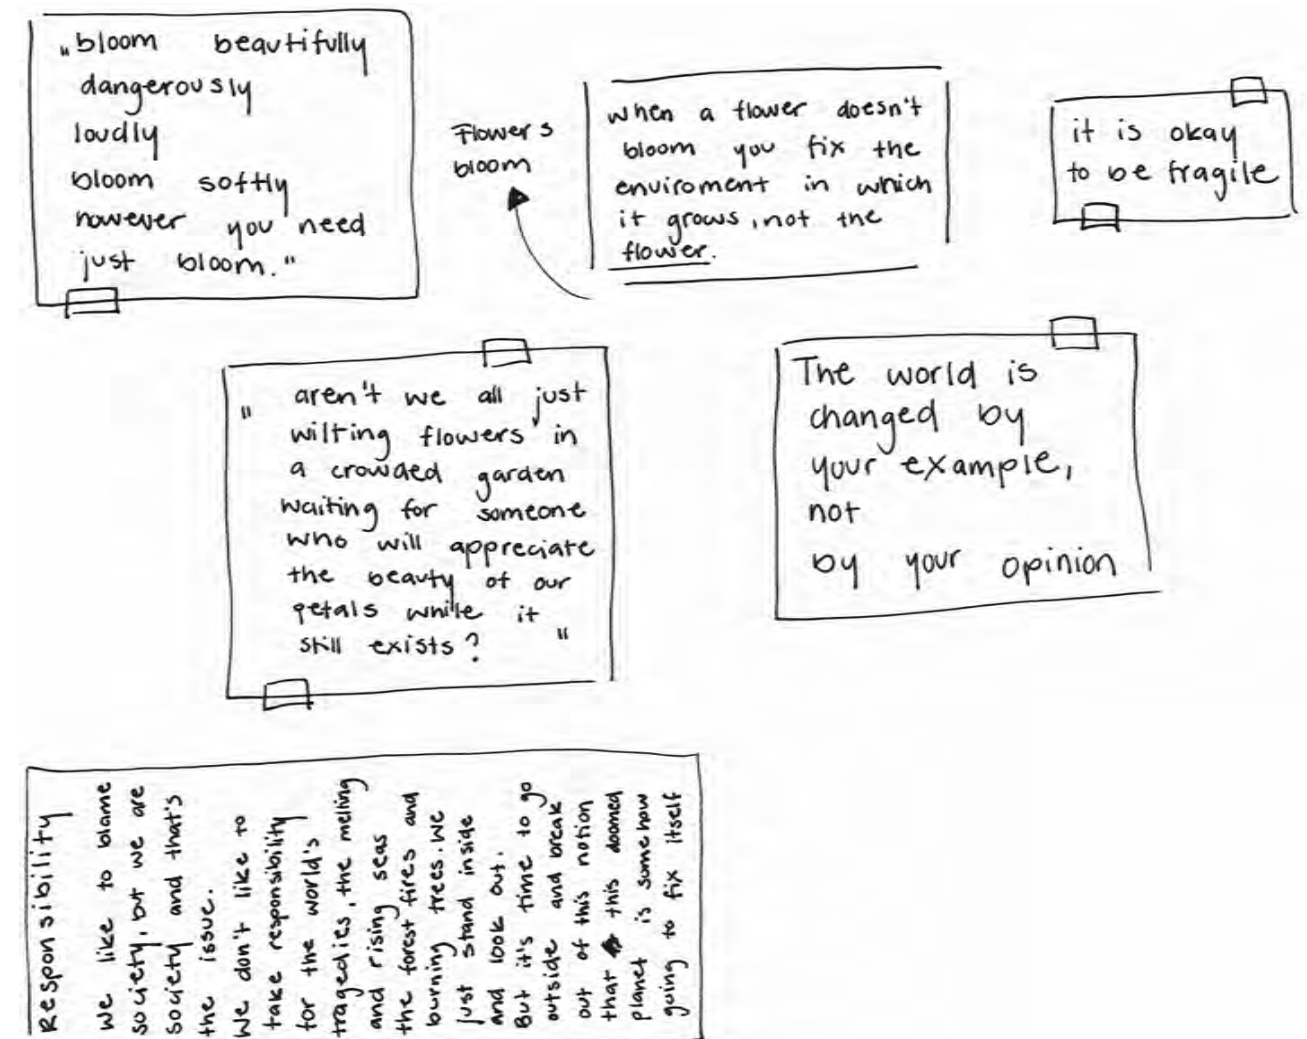 „bloom beautifully
dangerously
loudly
bloom softly
however you need
just bloom."
Flowers
bloom
when a flower doesn't
bloom you fix the
enviroment in which
it grows, not the
flower.
it is okay
to be fragile
" aren't we all just
wilting flowers in
a crowded garden
waiting for someone
who will appreciate
the beauty of our
petals while it
still exists? "
The world is
changed by
your example,
not
by your opinion
Responsibility
We like to blame
society, but we are
society and that's
the issue.
We don't like to
take responsibility
for the world's
tragedies, the melting
and rising seas
the forest fires and
burning trees. We
just stand inside
and look out.
But it's time to go
outside and break
out of this notion
that this doomed
planet is somehow
going to fix itself